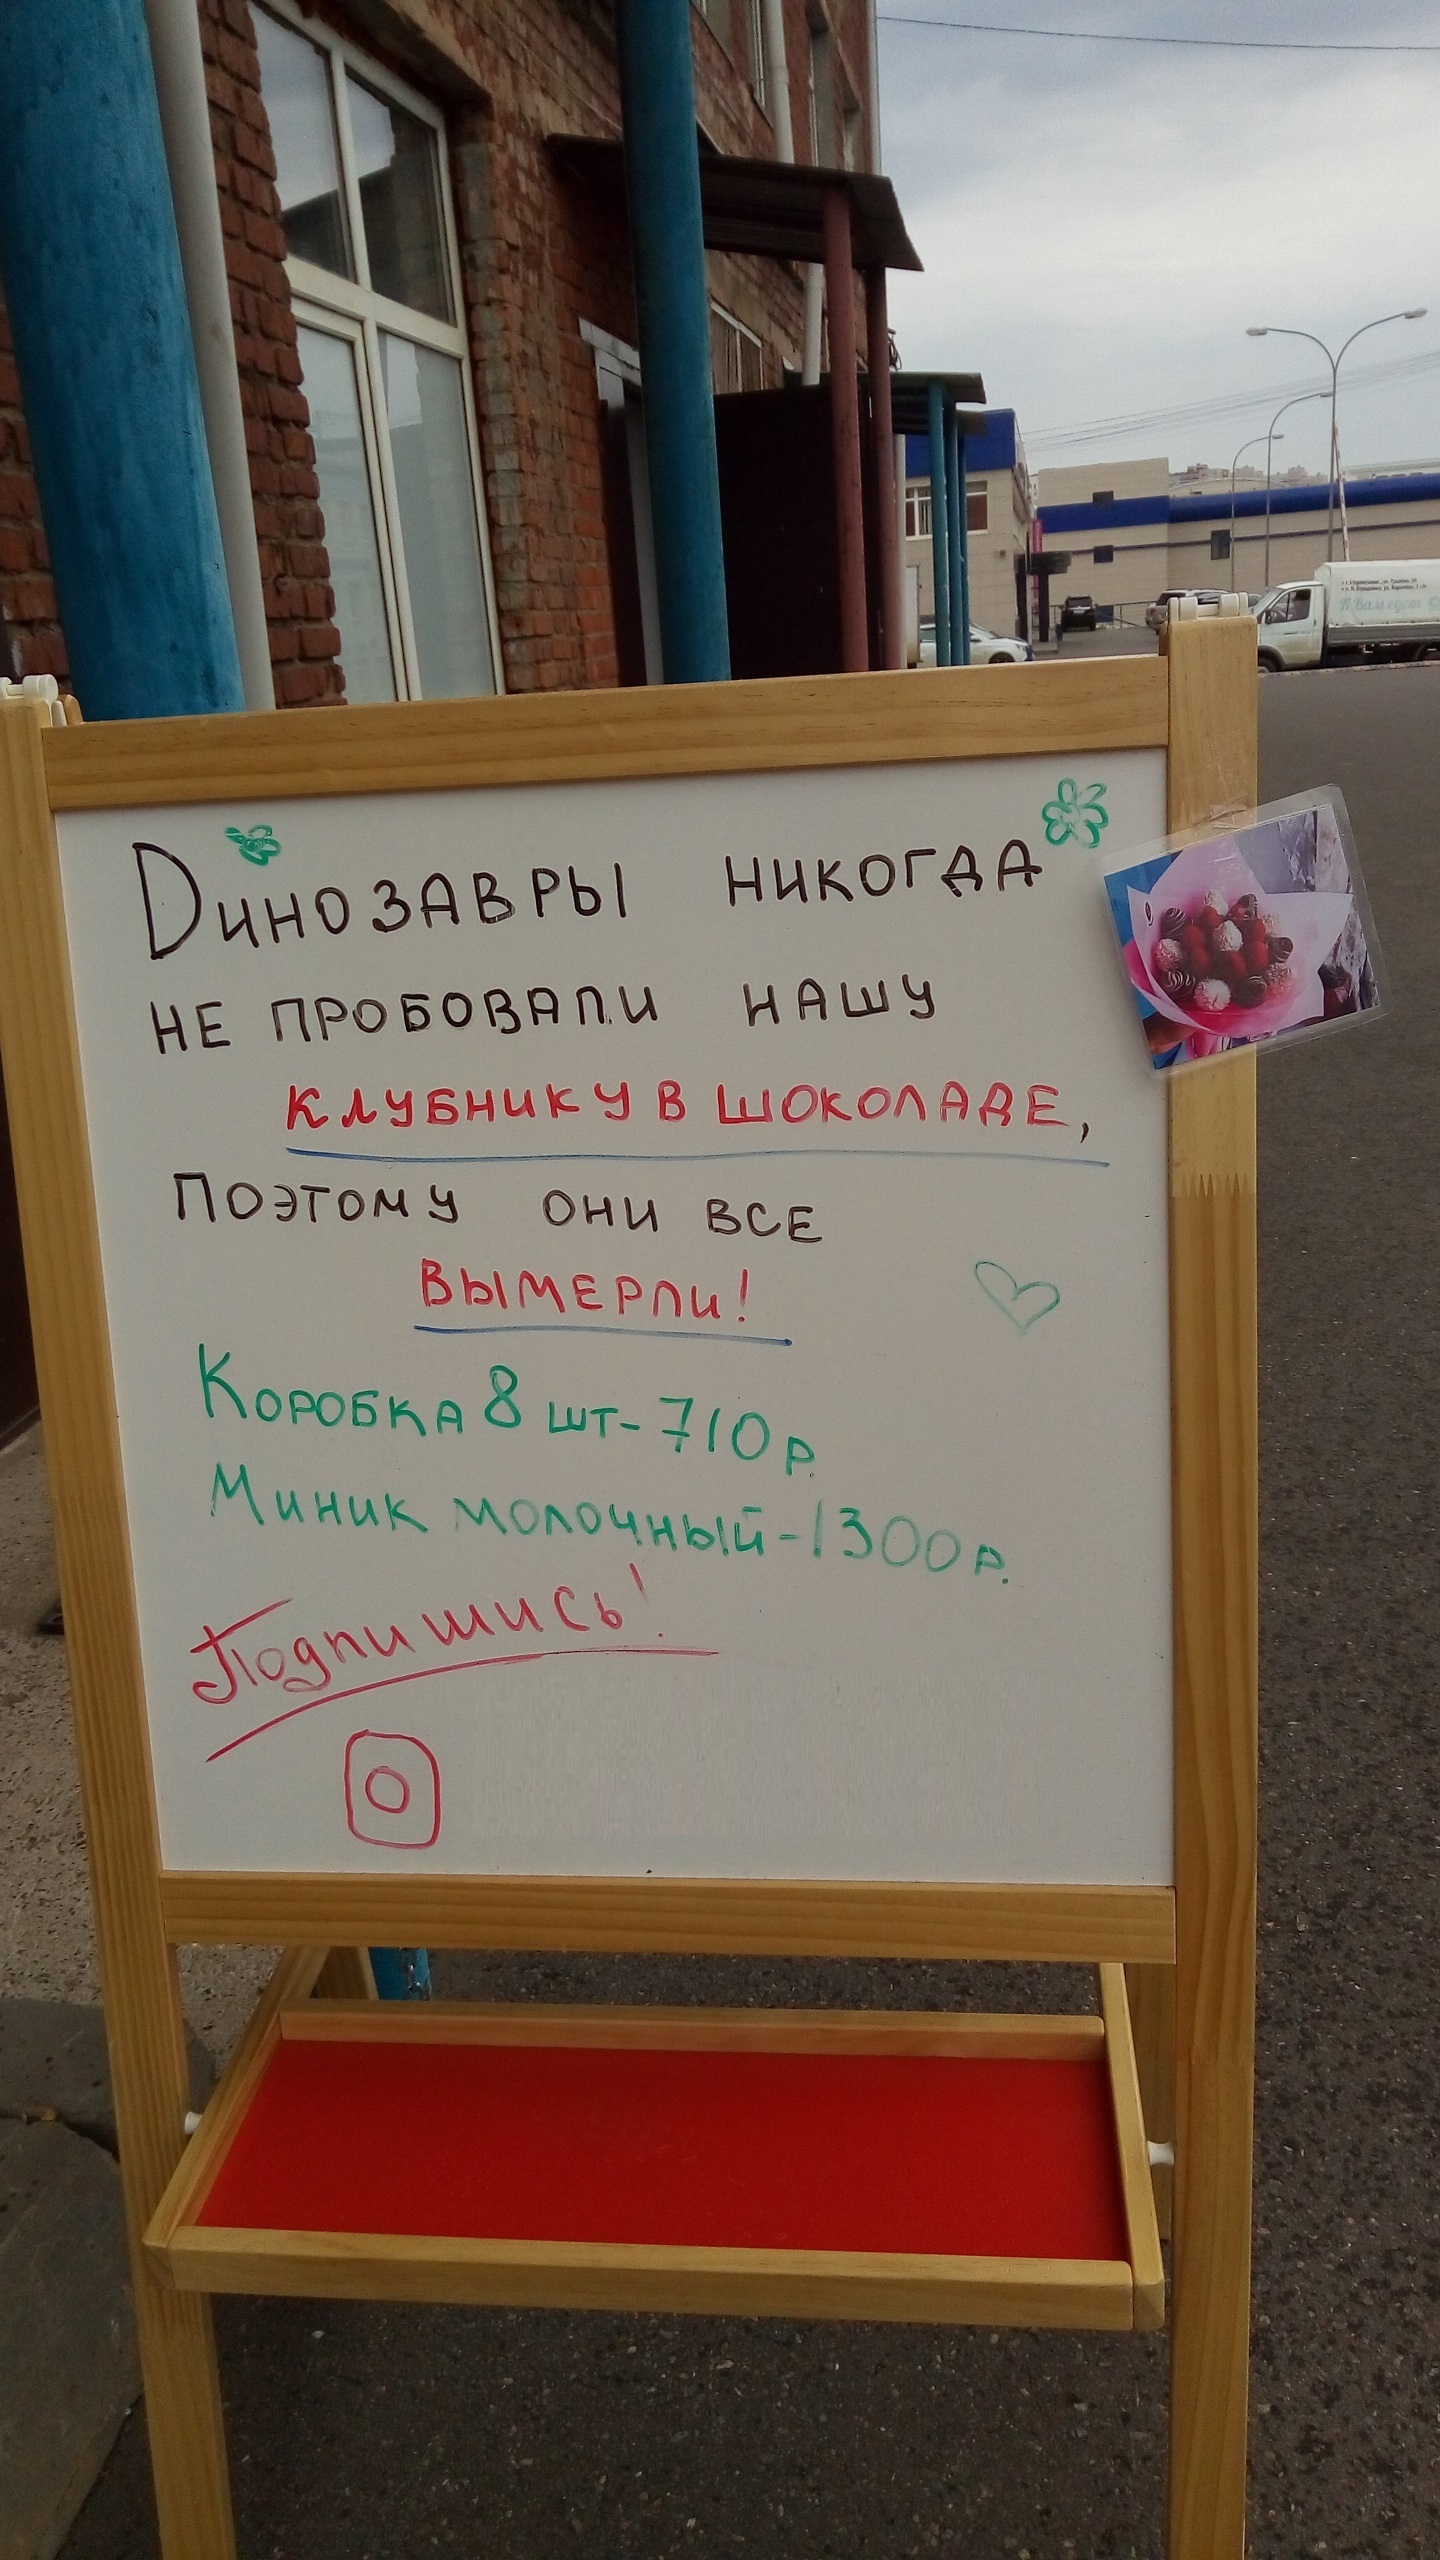 Динозавры никогда
не пробовали нашу
клубнику в шоколаде,
Поэтому они все
вымерли!
Коробка 8 шт-710р.
Миник молочный-1300р.
Подпишись!